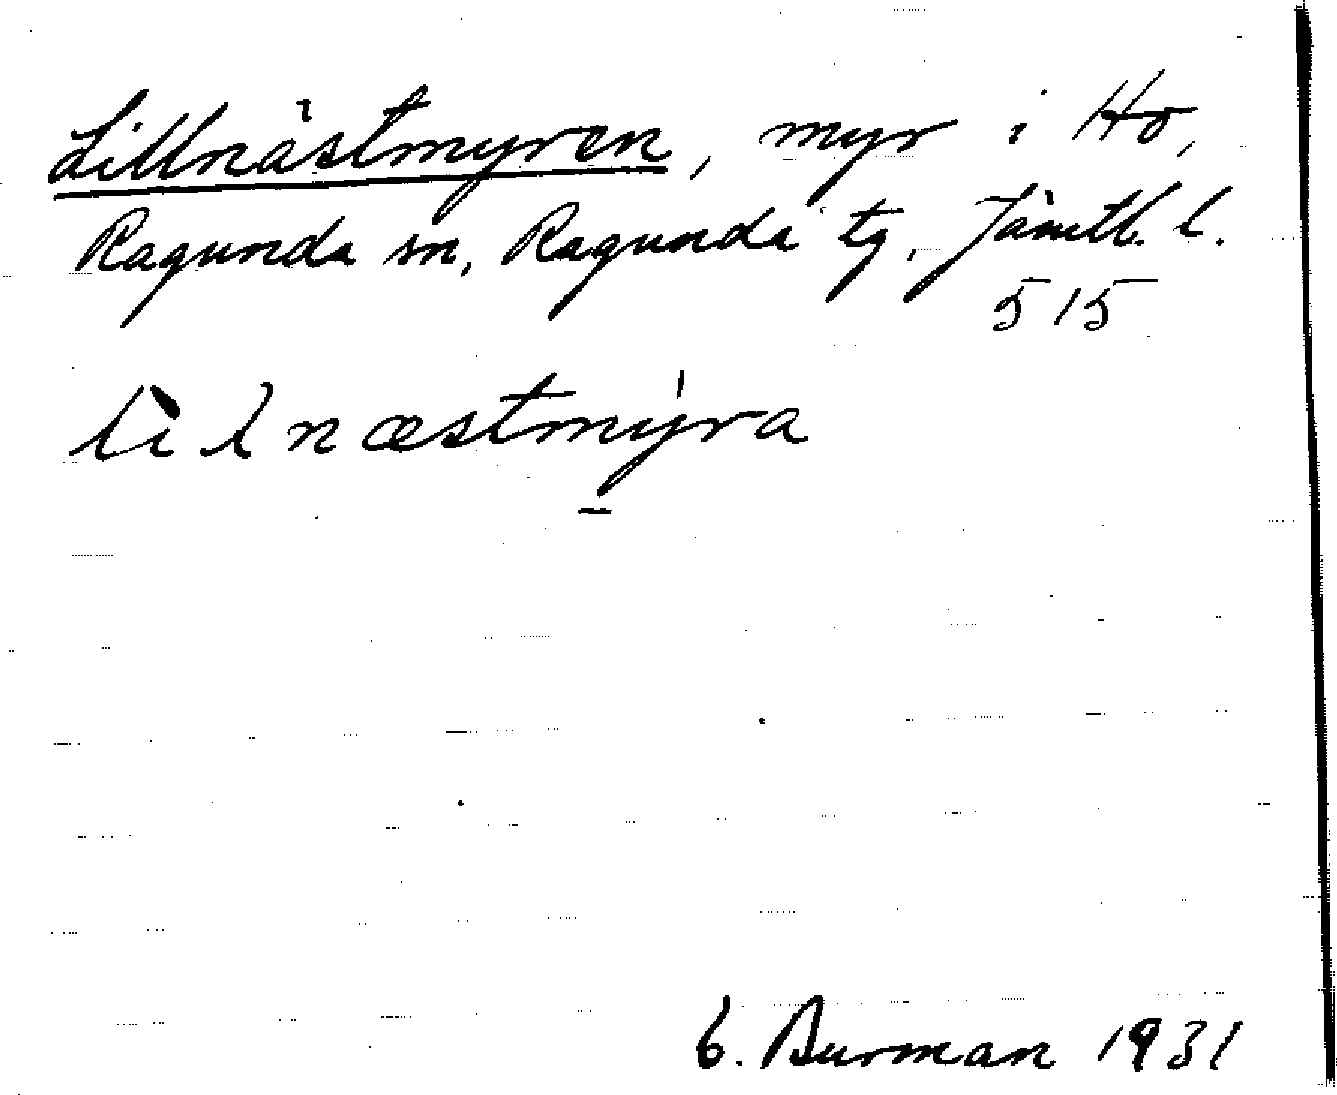 Lillnästmyren, myr i Hö,
Ragunda sn, Ragunda tg, Jämtl. l.
515
lìlnæstmýra
E. Burman 1931